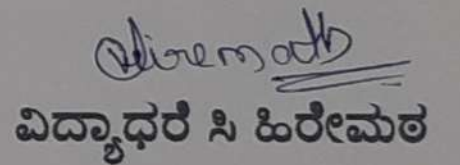 Hiremath
ವಿದ್ಯಾಧರೆ ಸಿ ಹಿರೇಮಠ